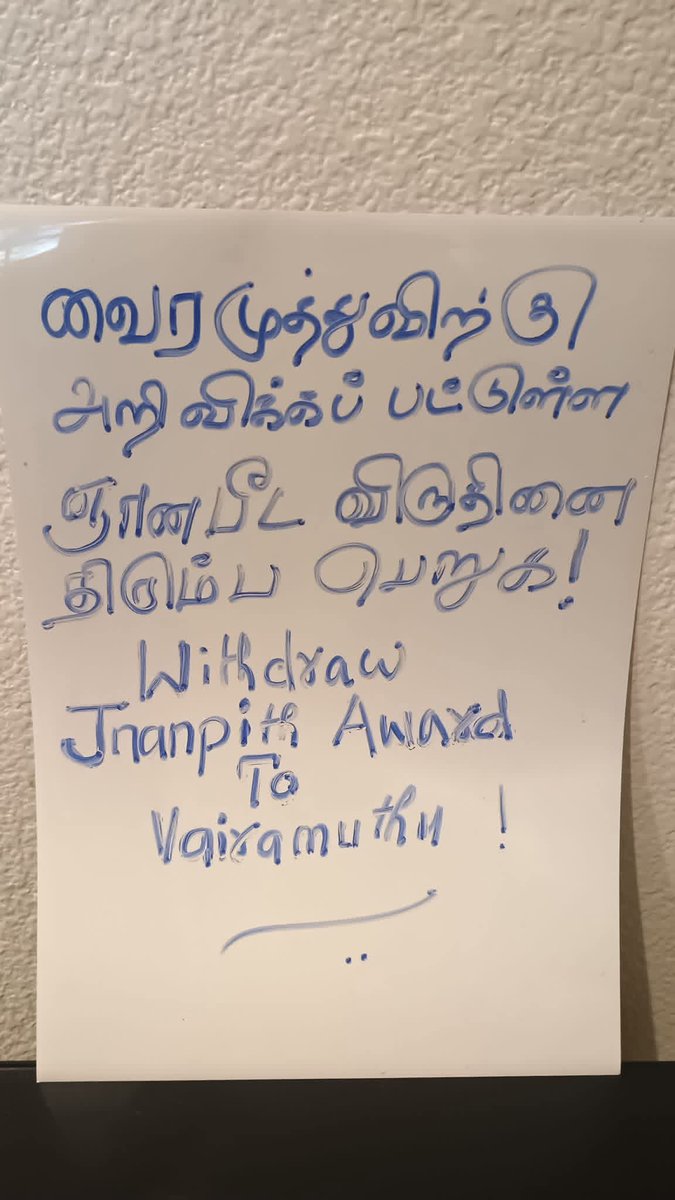 வைரமுத்துவிற்கு
அறிவிக்கப் பட்டுள்ள
ஞானபீட விருதினை
திரும்ப பெறுக!
Withdraw
Jnanpith Award
To
Vairamuthu !